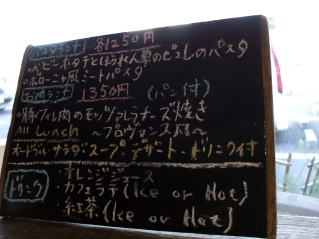 パスタランチ 各1250円
・ベビーホタテとほうれん草のピュレのパスタ
・ボローニャ風ミートパスタ
お肉ランチ 1350円 (パン付)
・豚フィレ肉のモッツァレラチーズ焼き
All Lunch ～プロヴァンス風～
オードヴル・サラダ・スープ・デザート・ドリンク付
ドリンク
・オレンジジュース
・カフェラテ (Ice or Hot)
・紅茶 (Ice or Hot)